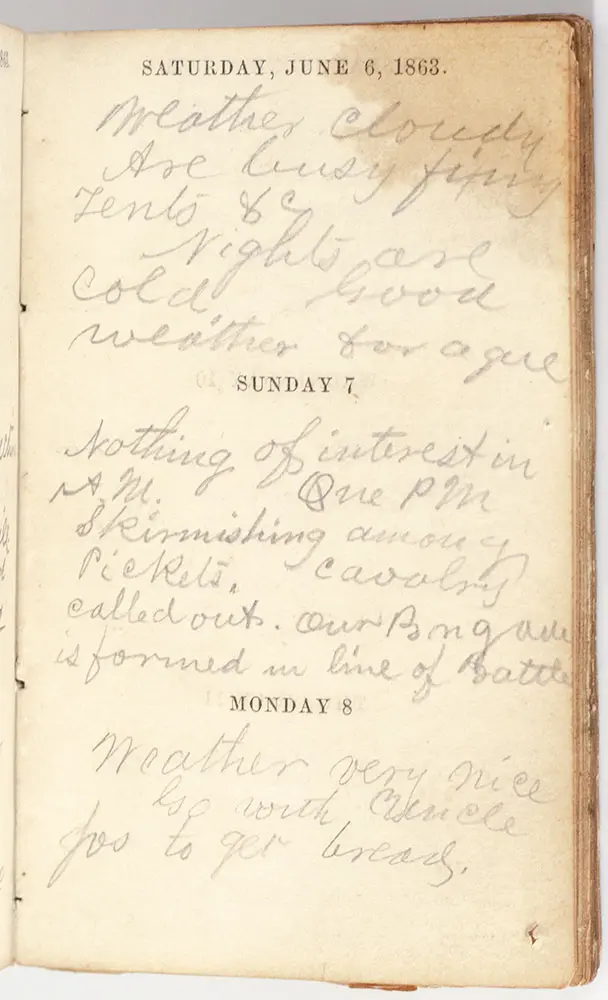 SATURDAY, JUNE 6, 1863.
Weather cloudy
Are busy fixing
Tents &c
Nights are
cold. Good
weather for ague
SUNDAY 7
Nothing of interest in
A.M. One PM
Skirmishing among
Pickets. Cavalry
called out. Our Brigade
is formed in line of Battle
MONDAY 8
Weather very nice
Go with Uncle
Jos to get bread.